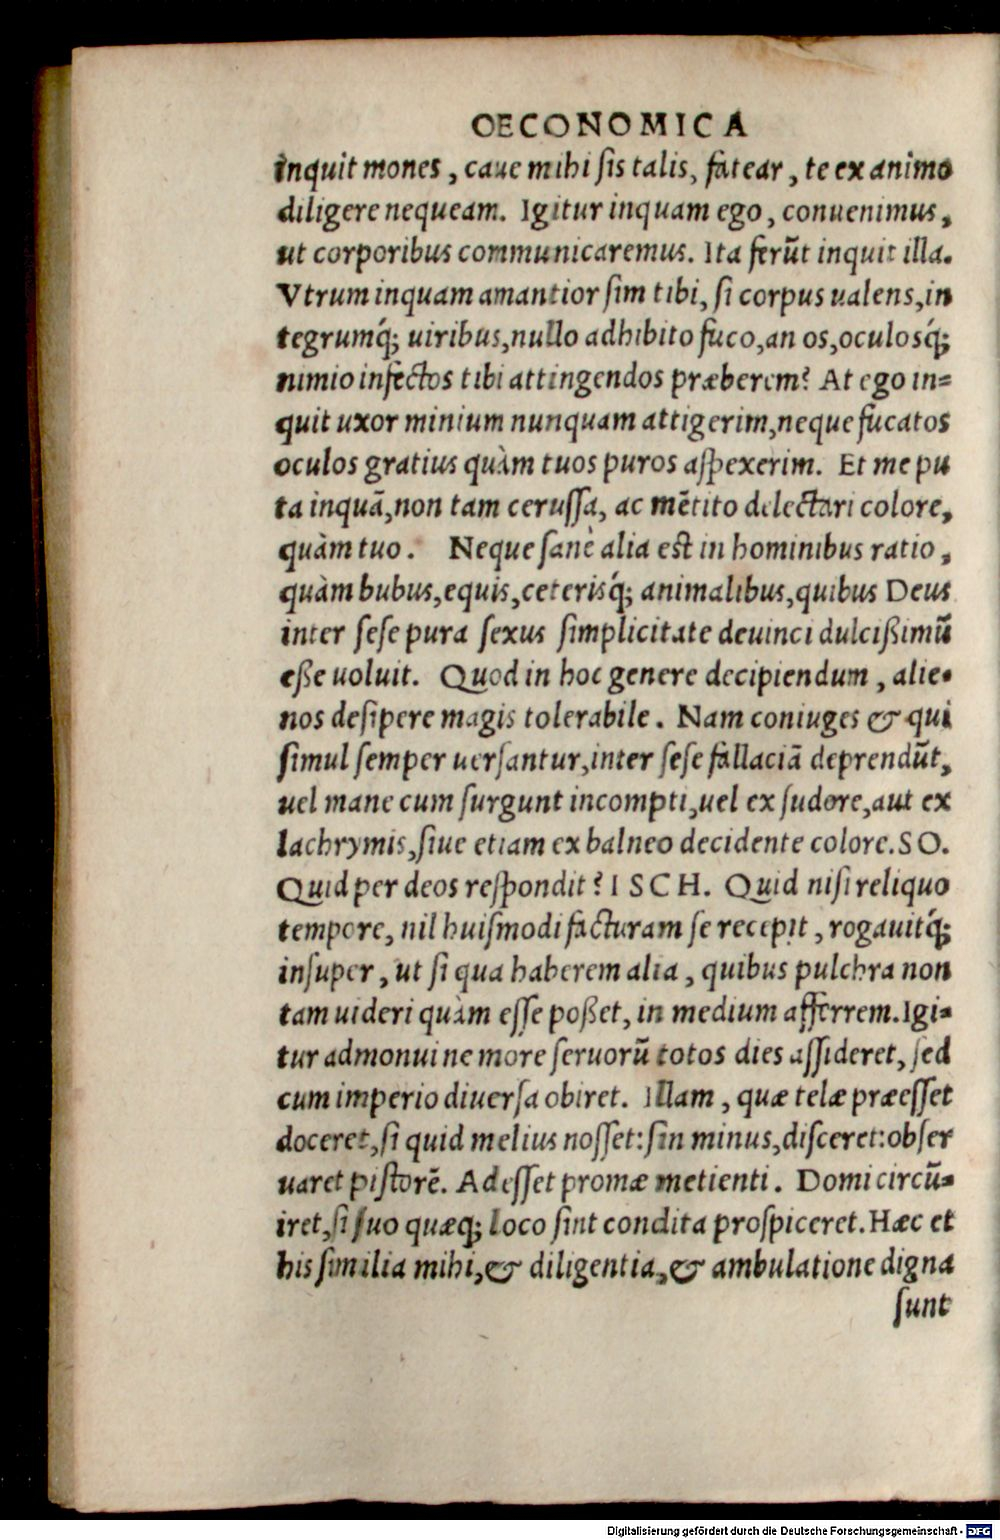 OECONOMICA
inquit mones, caue mihi ſis talis, fatear, te ex animo
diligere nequeam. Igitur inquam ego, conuenimus,
ut corporibus communicaremus. Ita ferūt inquit illa.
Vtrum inquam amantior ſim tibi, ſi corpus ualens, in
tegrumq́; uiribus, nullo adhibito fuco, an os, oculosq́;
nimio infectos tibi attingendos præberem? At ego in=
quit uxor minium nunquam attigerim, neque fucatos
oculos gratius quàm tuos puros aſpexerim. Et me pu
ta inquā, non tam ceruſſa, ac mētito delectari colore,
quàm tuo. Neque ſanè alia est in hominibus ratio,
quàm bubus, equis, ceterisq́; animalibus, quibus Deus
inter ſeſe pura ſexus ſimplicitate deuinci dulcißimū
eße uoluit. Quod in hoc genere decipiendum, alie=
nos deſipere magis tolerabile. Nam coniuges & qui
ſimul ſemper uerſantur, inter ſeſe fallaciā deprendūt,
uel mane cum ſurgunt incompti, uel ex ſudore, aut ex
lachrymis, ſiue etiam ex balneo decidente colore. SO.
Quid per deos reſpondit? ISCH. Quid niſi reliquo
tempore, nil huiſmodi facturam ſe recepit, rogauitq́;
inſuper, ut ſi qua haberem alia, quibus pulchra non
tam uideri quàm eſſe poßet, in medium afferrem. Igi=
tur admonui ne more ſeruorū totos dies aſſideret, ſed
cum imperio diuerſa obiret. Illam, quæ telæ præeſſet
doceret, ſi quid melius noſſet: ſin minus, diſceret: obſer
uaret piſtorē. Adeſſet promæ metienti. Domi circū=
iret, ſi ſuo quæq; loco ſint condita proſpiceret. Hæc et
his ſimilia mihi, & diligentia, & ambulatione digna
ſunt
Digitalisierung gefördert durch die Deutsche Forschungsgemeinschaft - DFG